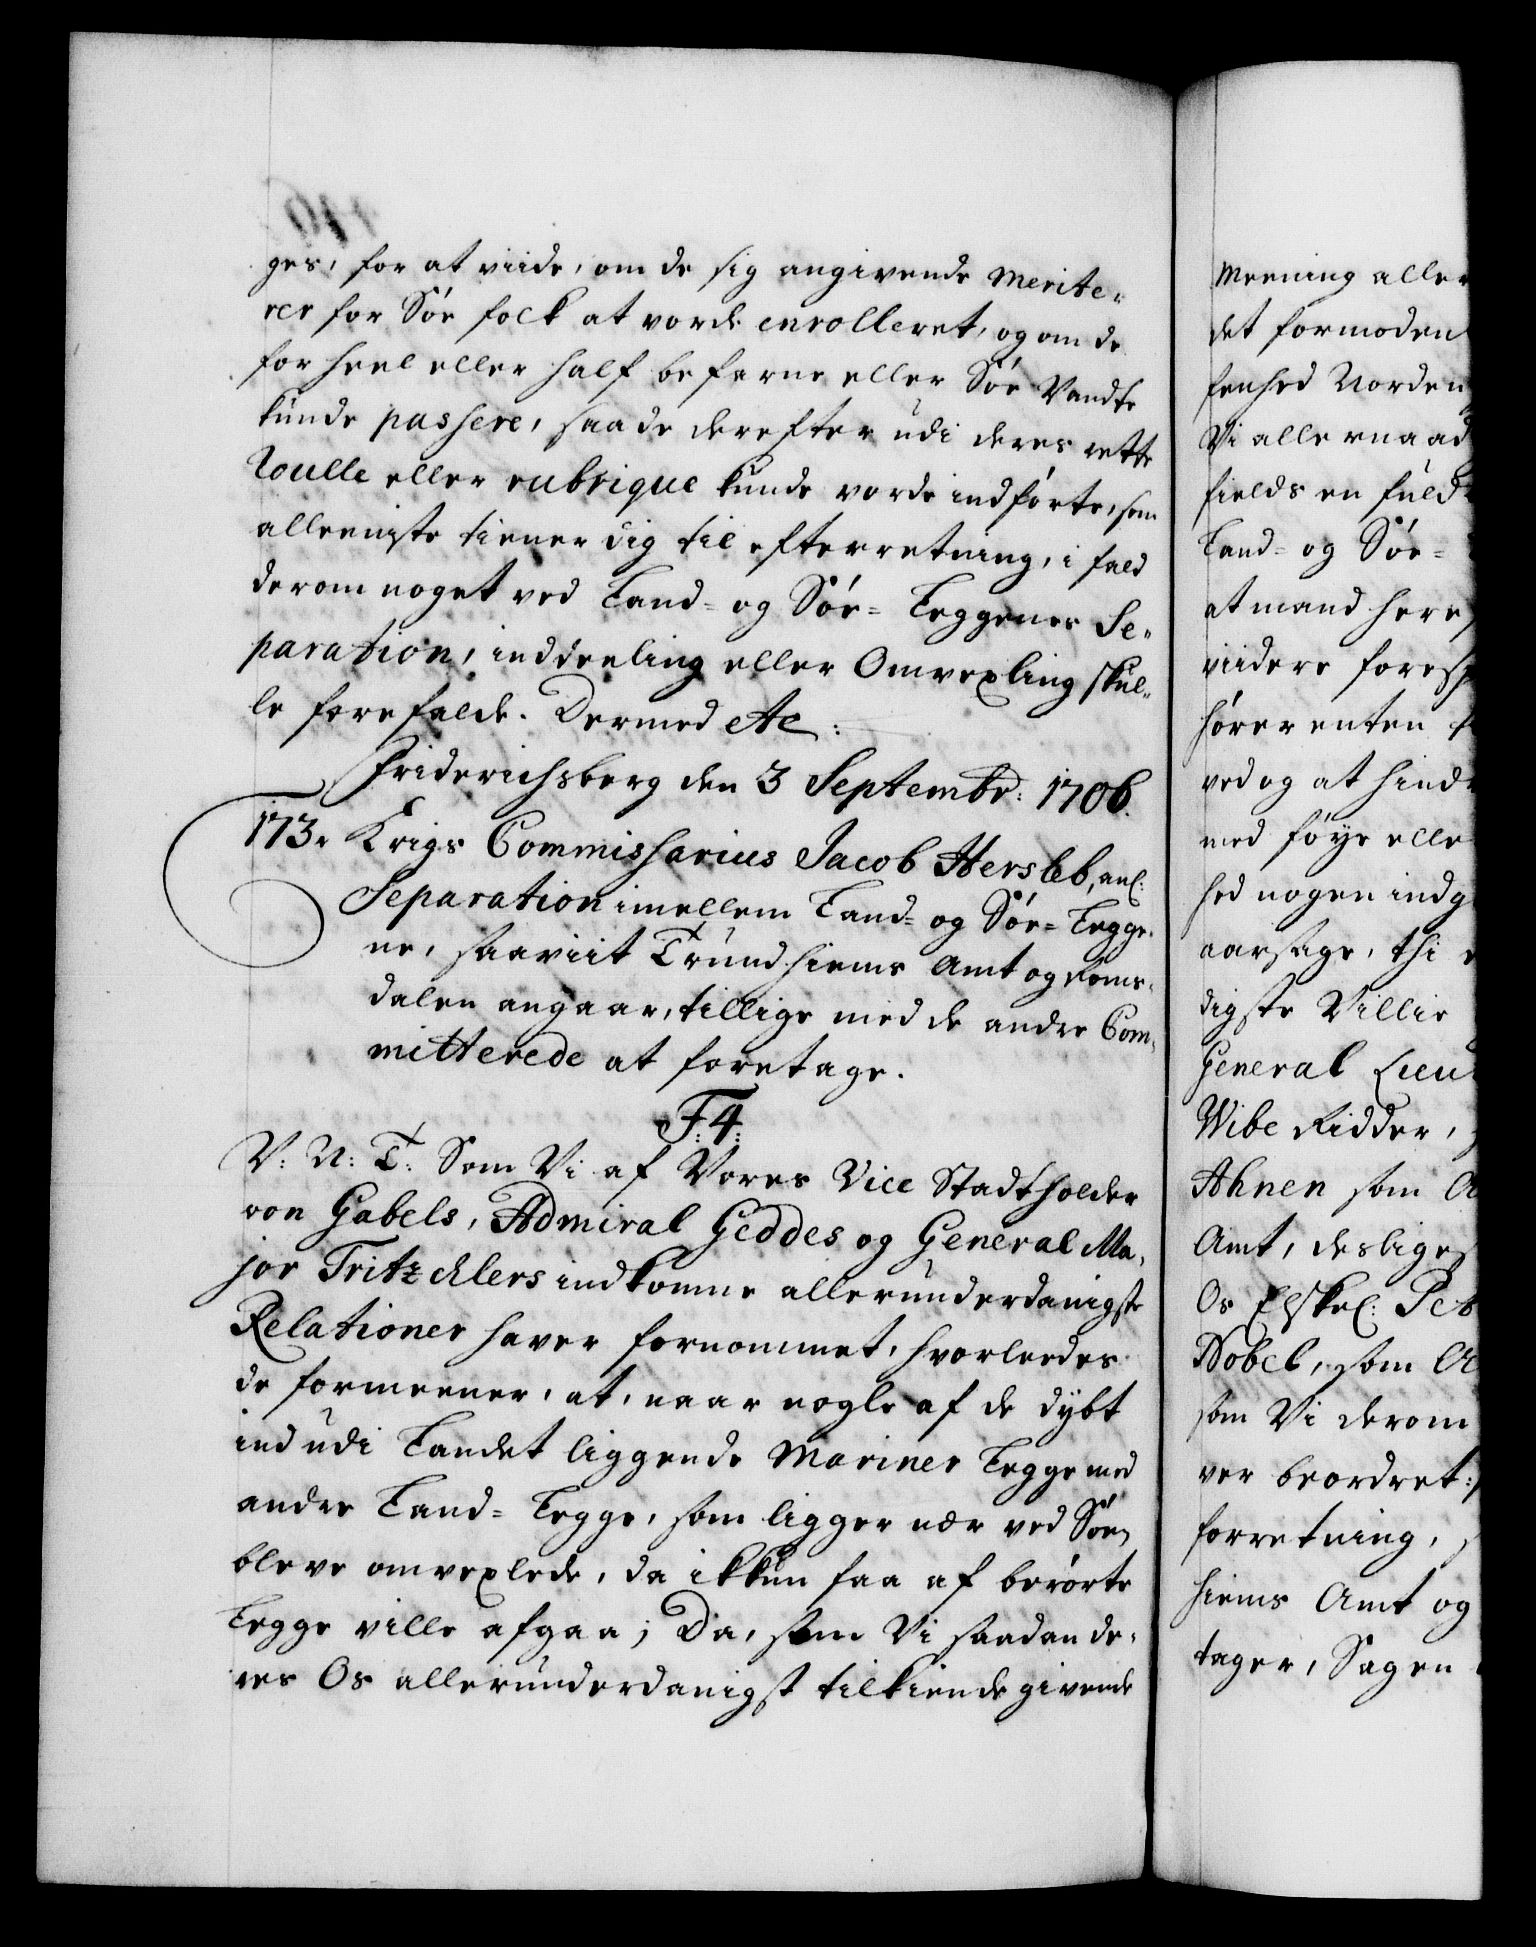 ges, for at viide, om de sig angivende merite-
rer for Søe folck at vorde enrolleret, og om de
for heel eller half befarne eller Søe Vandte
kunde passere, saa de derefter udi deres rette
Roulle eller rubrique kunde vorde indførte, som
alleeniste tiener dig til efterretning, i fald
derom noget ved Land- og Søe- Leggenes Se-
paration, inddeeling eller Omvexling skul-
le forefalde. Dermed etc:
Friderichsberg den 3 Septembr: 1706.
173. Krigs Commissarius Jacob Hersleb, anl:
Separation imellem Land- og Søe- Legge-
ne, saaviit Trundhiems Amt og Roms-
dalen angaar, tillige med de andre Com-
mitterede at foretage.
F: 4:
V: U: T: Som Vi af Vores Vice Stadtholder
von Gabels, Admiral Geddes og General Ma-
jor Tritzchlers indkomne allerunderdanigste
Relationer haver fornommet, hvorledes
de formeener, at, naar nogle af de dybt
ind udi Landet liggende Mariner Legge med
andre Land- Legge, som ligger nær ved Søen,
bleve omvexlede, da ikkun faa af berørte
Legge ville afgaa; Da, som Vi saadan de-
res Os allerunderdanigst tilkiende givende
Meening aller
det formoden
fenhed Norden
Vi allernaad
fields en fuld
Land- og Søe-
at mand here
viidere foresp
hører enten
ved og at hind
med føye elle
hed nogen indg
aarsage, thi
digste Villie
General Lieu
Wibe Ridder,
Ahnen som A
Amt, desliges
Os Elskel: Pet
Dobel, som A
som Vi derom
ver beordret:
forretning,
hiems Amt og
tager, Sagen